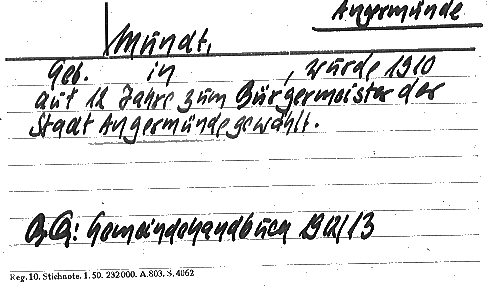 Angermünde
Mundt,
Geb. in , wurde 1910
auf 12 Jahre zum Bürgermeister der
Stadt Angermünde gewählt.
Gemeindehandbuch 1912/13
Reg. 10. Stichnote. 1. 50. 232000. A. 803. S. 4062